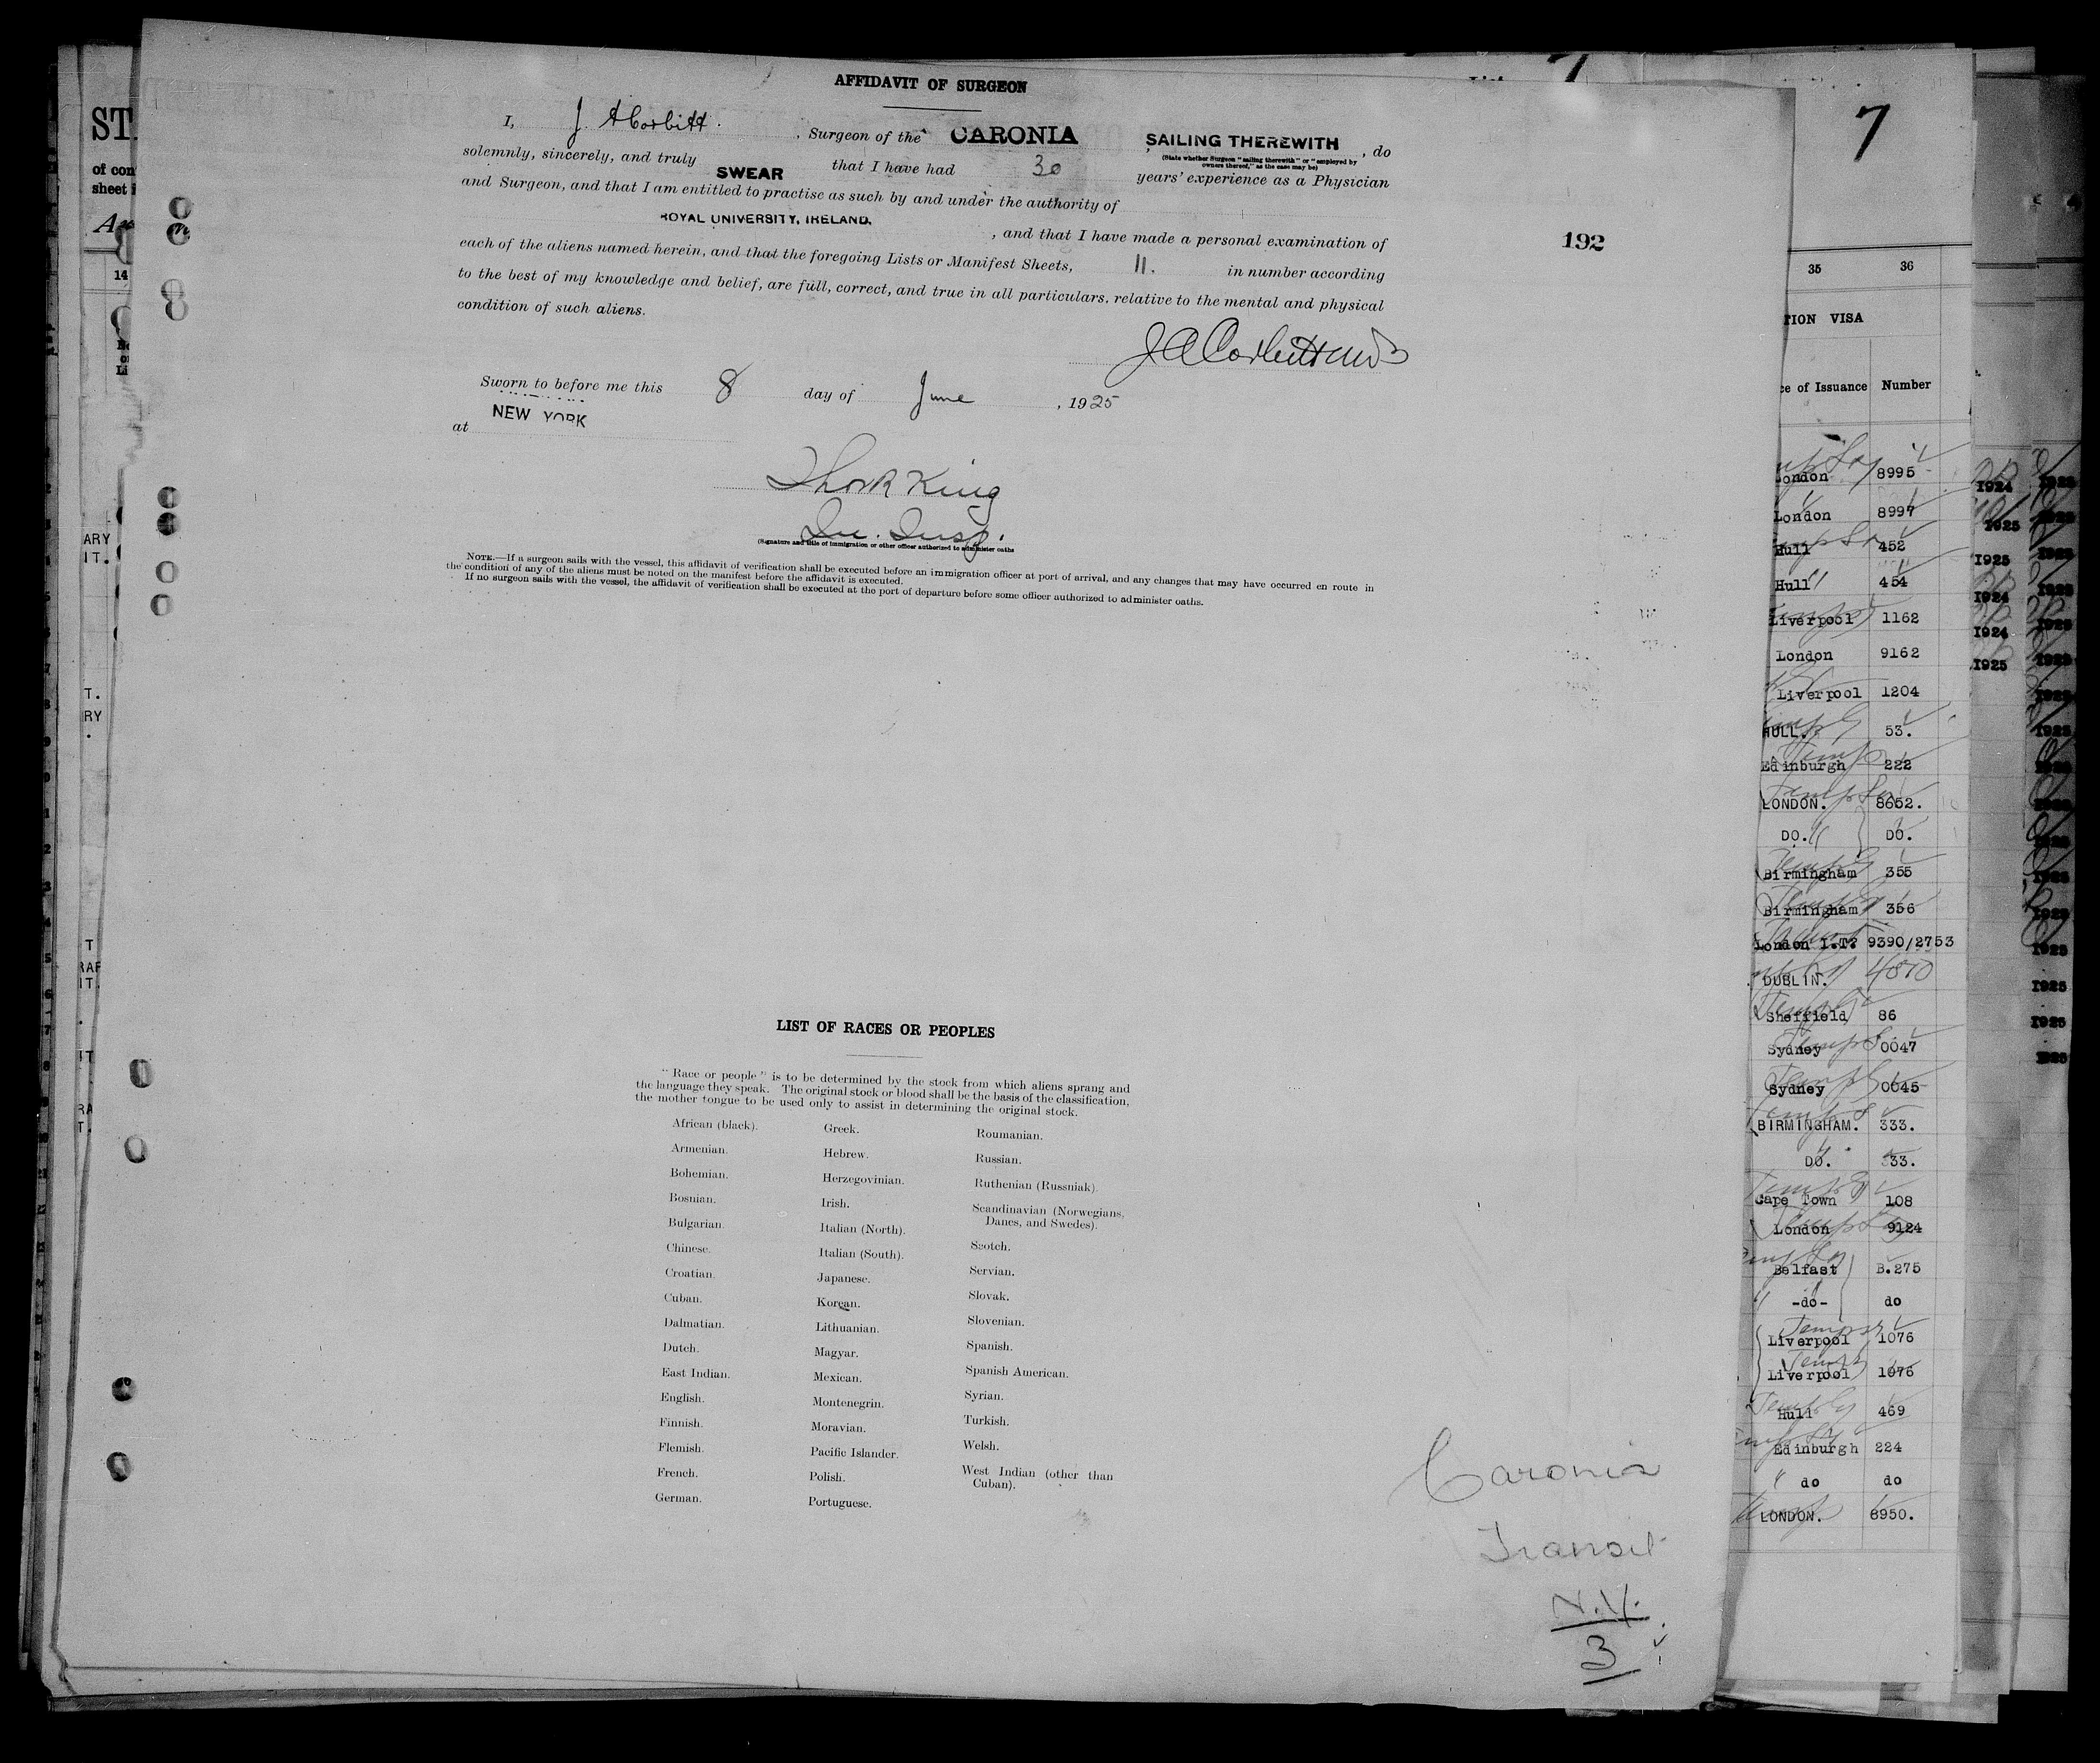 AFFIDAVIT OF SURGEON
I, J. A Corbitt. , Surgeon of the CARONIA SAILING THEREWITH , do
(State whether Surgeon "sailing therewith" or "employed by
owners thereof," as the case may be)
solemnly, sincerely, and truly SWEAR that I have had 30 years' experience as a Physician
and Surgeon, and that I am entitled to practise as such by and under the authority of
ROYAL UNIVERSITY, IRELAND.
, and that I have made a personal examination of
each of the aliens named herein, and that the foregoing Lists or Manifest Sheets, 11. in number according
to the best of my knowledge and belief, are full, correct, and true in all particulars, relative to the mental and physical
condition of such aliens.
J A Corbitt MB
Sworn to before me this 8 day of June , 1925
at NEW YORK
King
Im. Insp.
(Signature and title of immigration or other officer authorized to administer oaths
NOTE.—If a surgeon sails with the vessel, this affidavit of verification shall be executed before an immigration officer at port of arrival, and any changes that may have occurred en route in
the condition of any of the aliens must be noted on the manifest before the affidavit is executed.
If no surgeon sails with the vessel, the affidavit of verification shall be executed at the port of departure before some officer authorized to administer oaths.
192
LIST OF RACES OR PEOPLES
"Race or people" is to be determined by the stock from which aliens sprang and
the language they speak. The original stock or blood shall be the basis of the classification,
the mother tongue to be used only to assist in determining the original stock.
African (black).
Armenian.
Bohemian.
Bosnian.
Bulgarian.
Chinese.
Croatian.
Cuban.
Dalmatian.
Dutch.
East Indian.
English.
Finnish.
Flemish.
French.
German.
Greek.
Hebrew.
Herzegovinian.
Irish.
Italian (North).
Italian (South).
Japanese.
Korean.
Lithuanian.
Magyar.
Mexican.
Montenegrin.
Moravian.
Pacific Islander.
Polish.
Portuguese.
Roumanian.
Russian.
Ruthenian (Russniak).
Scandinavian (Norwegians,
Danes, and Swedes).
Scotch.
Servian.
Slovak.
Slovenian.
Spanish.
Spanish American.
Syrian.
Turkish.
Welsh.
West Indian (other than
Cuban).
Caronia
Transit
N.Y.
3
7
35 36
TION VISA
ce of Issuance Number
London 8995
London 8997
Hull 452
Hull 454
Liverpool 1162
London 9162
Liverpool 1204
HULL. 53.
Edinburgh 222
LONDON. 8652.
DO. DO.
Birmingham 355
Birmingham 356
London I.T? 9390/2753
DUBLIN.
Sheffield 86
Sydney 0047
Sydney 0045
BIRMINGHAM. 333.
DO. 333.
Cape Town 108
London 9124
Belfast B.275
-do- do
Liverpool 1076
Liverpool 1076
Hull 469
Edinburgh 224
do do
LONDON. 8950.
1924
1925
1925
1924
1924
1925
ST
of con
sheet
14
ARY
IT.
T.
RY